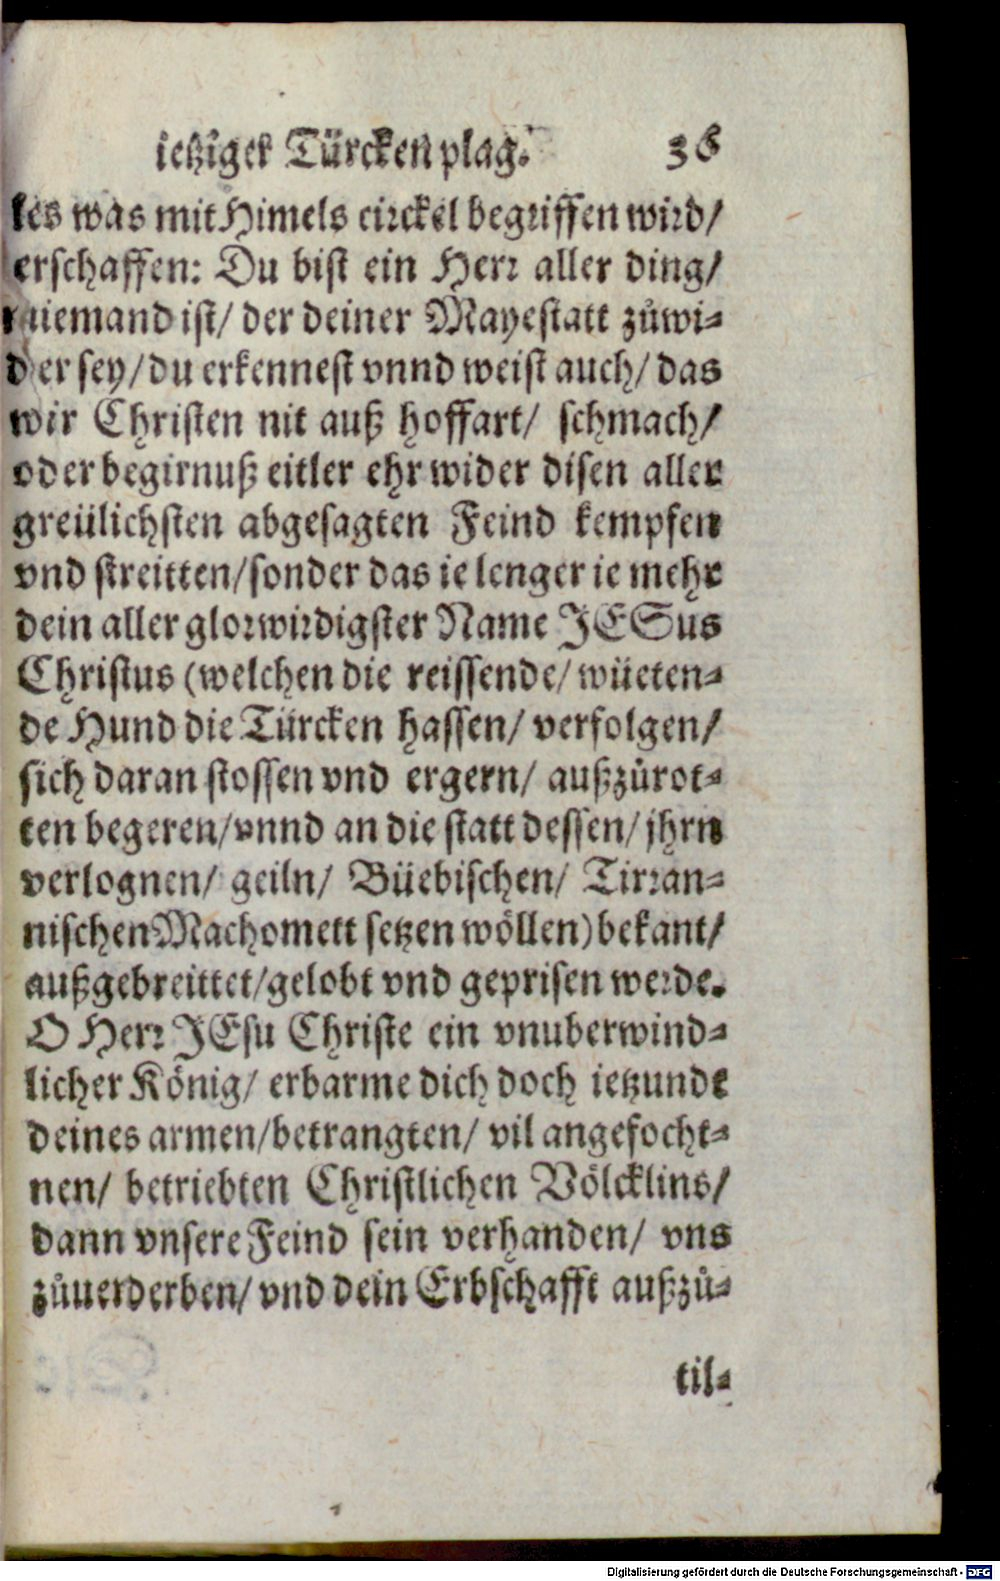 ietziger Türcken plag. 36
les was mit Himels circkel begriffen wird/
erschaffen: Du bist ein Herr aller ding/
niemand ist/ der deiner Mayestatt zůwi-
der sey/ du erkennest vnnd weist auch/ das
wir Christen nit auß hoffart/ schmach/
oder begirnuß eitler ehr wider disen aller
greülichsten abgesagten Feind kempfen
vnd streitten/ sonder das ie lenger ie mehr
dein aller glorwirdigster Name JESus
Christus (welchen die reissende/ wüeten-
de Hund die Türcken hassen/ verfolgen/
sich daran stossen vnd ergern/ außzůrot-
ten begeren/ vnnd an die statt dessen/ jhrn
verlognen/ geiln/ Büebischen/ Tirran-
nischen Machomett setzen wöllen) bekant/
außgebreittet/ gelobt vnd geprisen werde.
O Herr JEsu Christe ein vnuberwind-
licher König/ erbarme dich doch ietzundt
deines armen/ betrangten/ vil angefocht-
nen/ betriebten Christlichen Völcklins/
dann vnsere Feind sein verhanden/ vns
zůuerderben/ vnd dein Erbschafft außzů-
til-
Digitalisierung gefördert durch die Deutsche Forschungsgemeinschaft - DFG